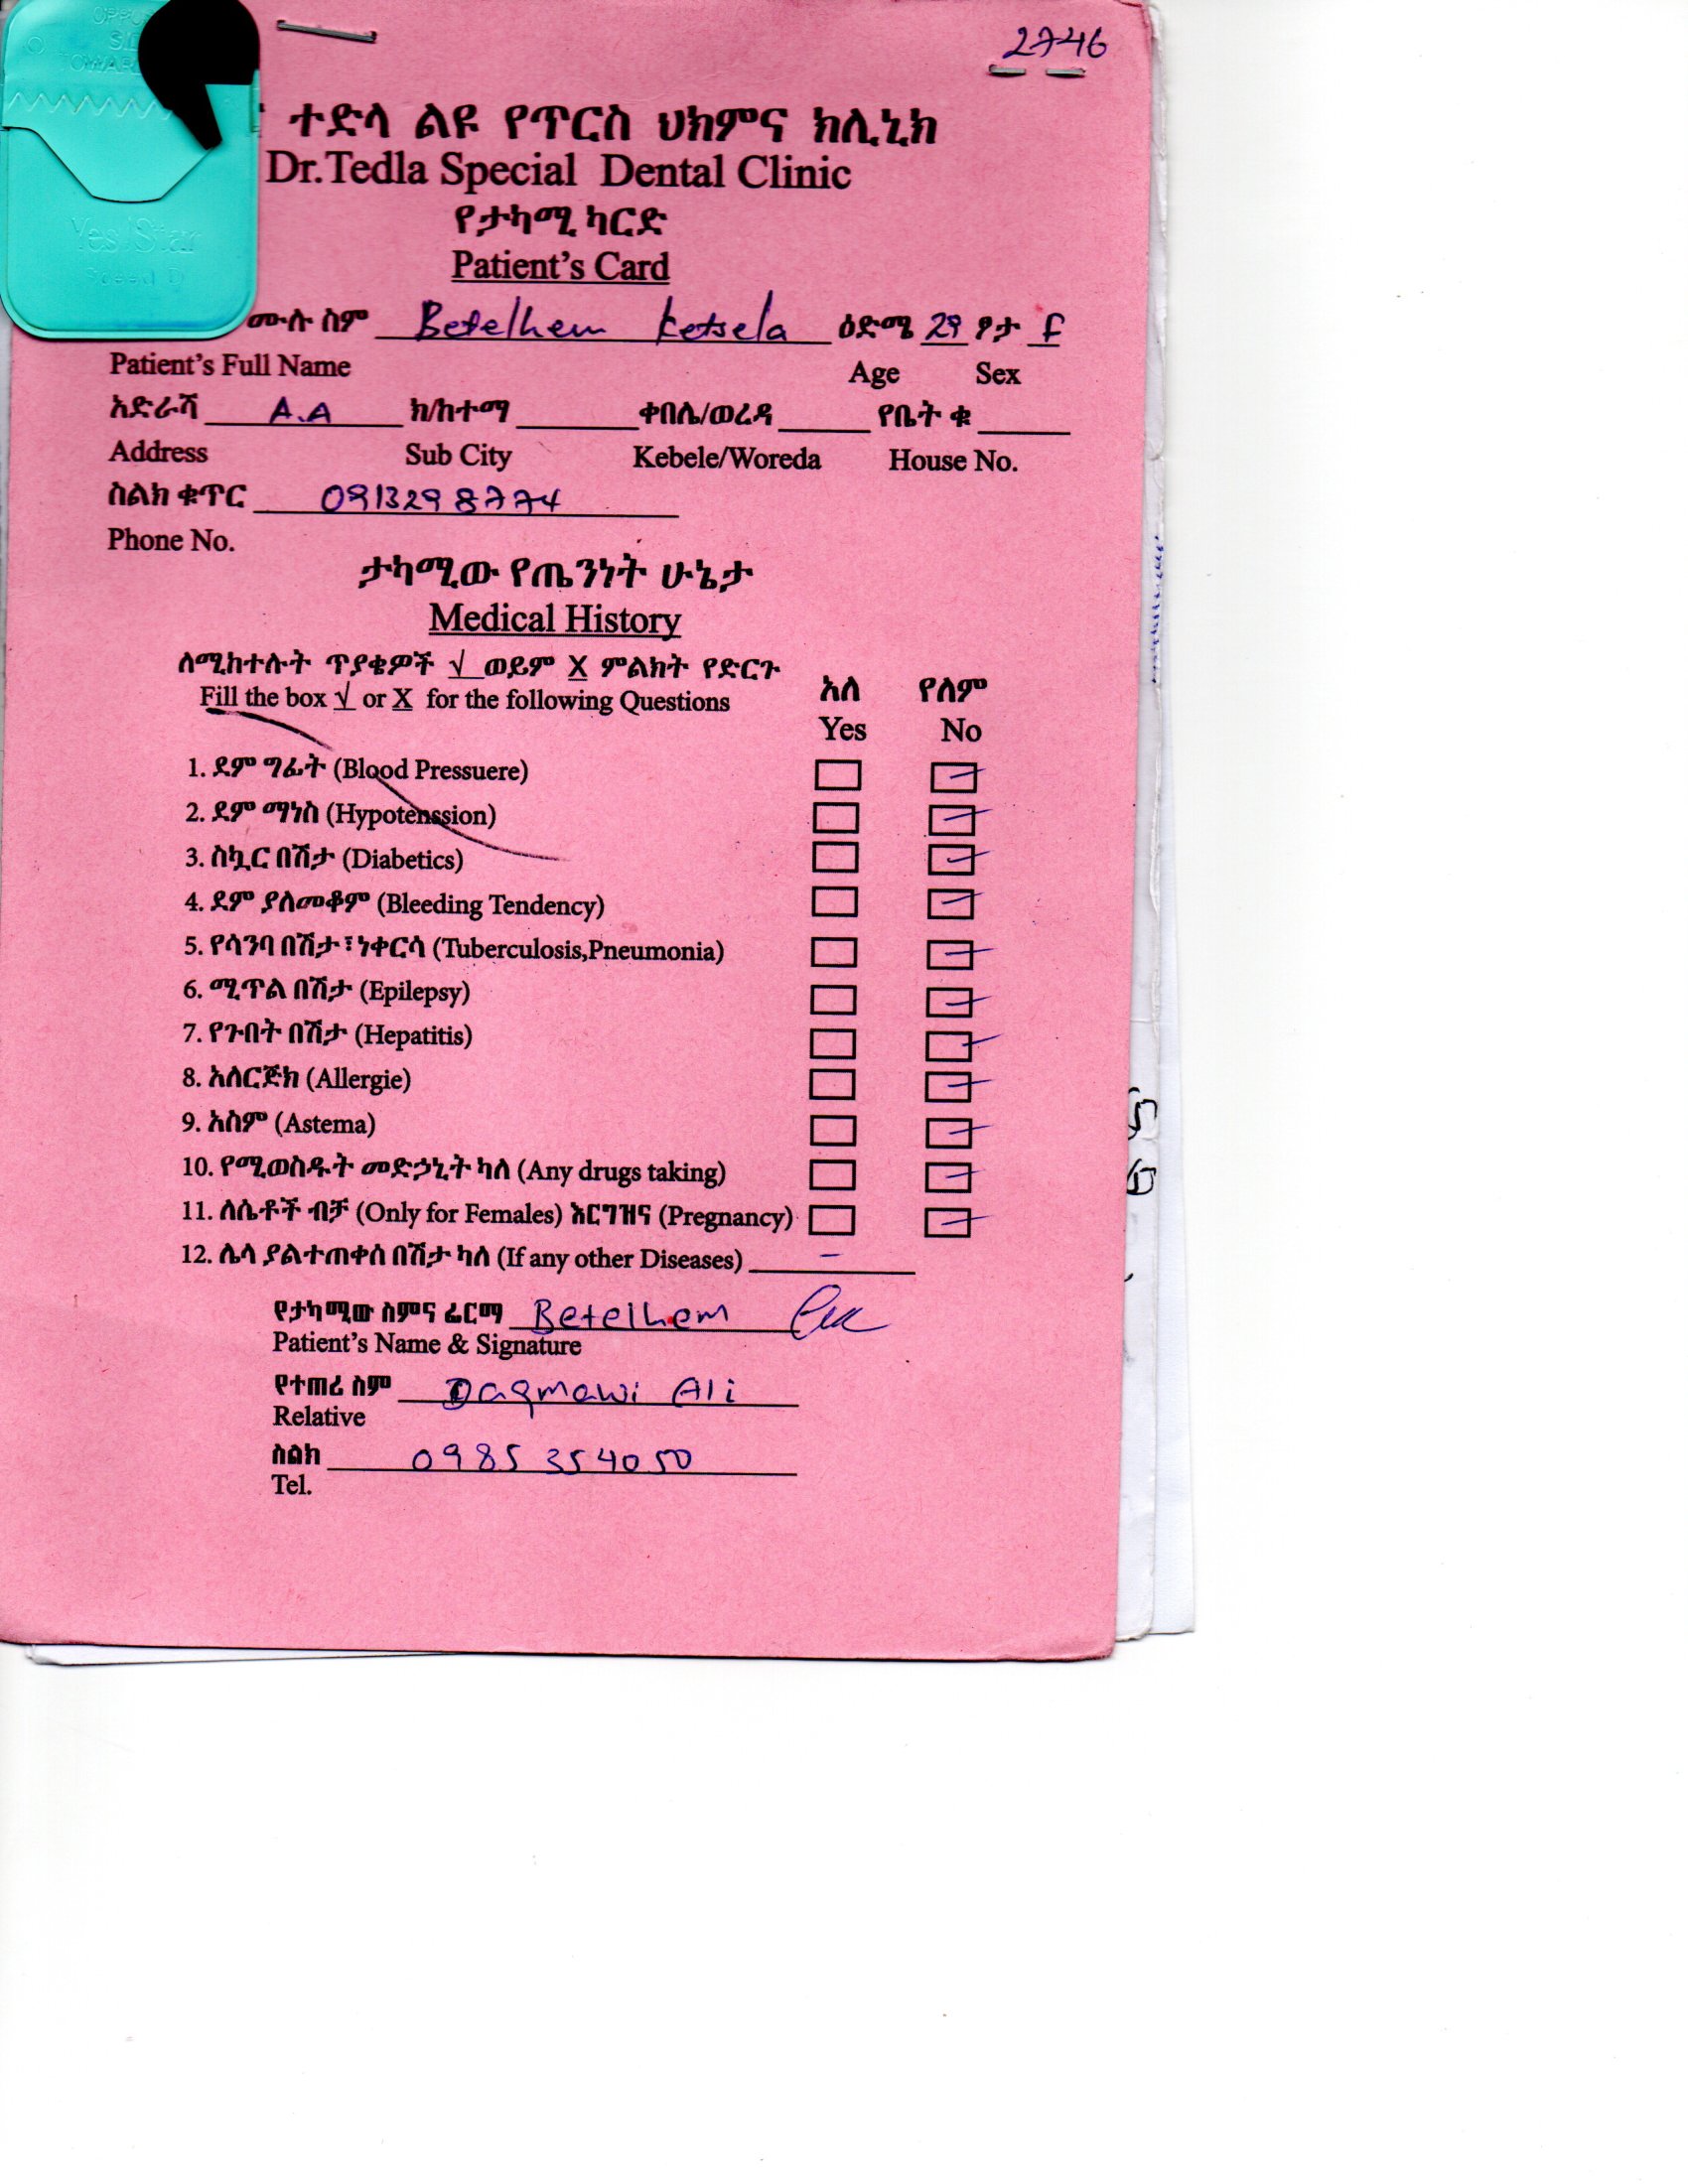 2746
ተድላ ልዩ የጥርስ ህክምና ክሊኒክ
Dr.Tedla Special Dental Clinic
የታካሚ ካርድ
Patient's Card
Yes Star
ሙሉ ስም Betelhem Ketsela ዕድሜ 29 ፆታ F
Patient's Full Name Age Sex
አድራሻ A.A ክ/ከተማ ቀበሌ/ወረዳ የቤት ቁ
Address Sub City Kebele/Woreda House No.
ስልክ ቁጥር 0913298774
Phone No.
ታካሚው የጤንነት ሁኔታ
Medical History
ለሚከተሉት ጥያቄዎች √ ወይም X ምልክት የድርጉ
Fill the box √ or X for the following Questions
አለ የለም
Yes No
1. ደም ግፊት (Blood Pressuere)
2. ደም ማነስ (Hypotenssion)
3. ስኳር በሽታ (Diabetics)
4. ደም ያለመቆም (Bleeding Tendency)
5. የሳንባ በሽታ፣ነቀርሳ (Tuberculosis,Pneumonia)
6. ሚጥል በሽታ (Epilepsy)
7. የጉበት በሽታ (Hepatitis)
8. አለርጅክ (Allergie)
9. አስም (Astema)
10. የሚወስዱት መድኃኒት ካለ (Any drugs taking)
11. ለሴቶች ብቻ (Only for Females) እርግዝና (Pregnancy)
12. ሌላ ያልተጠቀሰ በሽታ ካለ (If any other Diseases) –
የታካሚው ስምና ፊርማ Betelhem
Patient's Name & Signature
የተጠሪ ስም Dagmawi Ali
Relative
ስልክ 0985 354050
Tel.